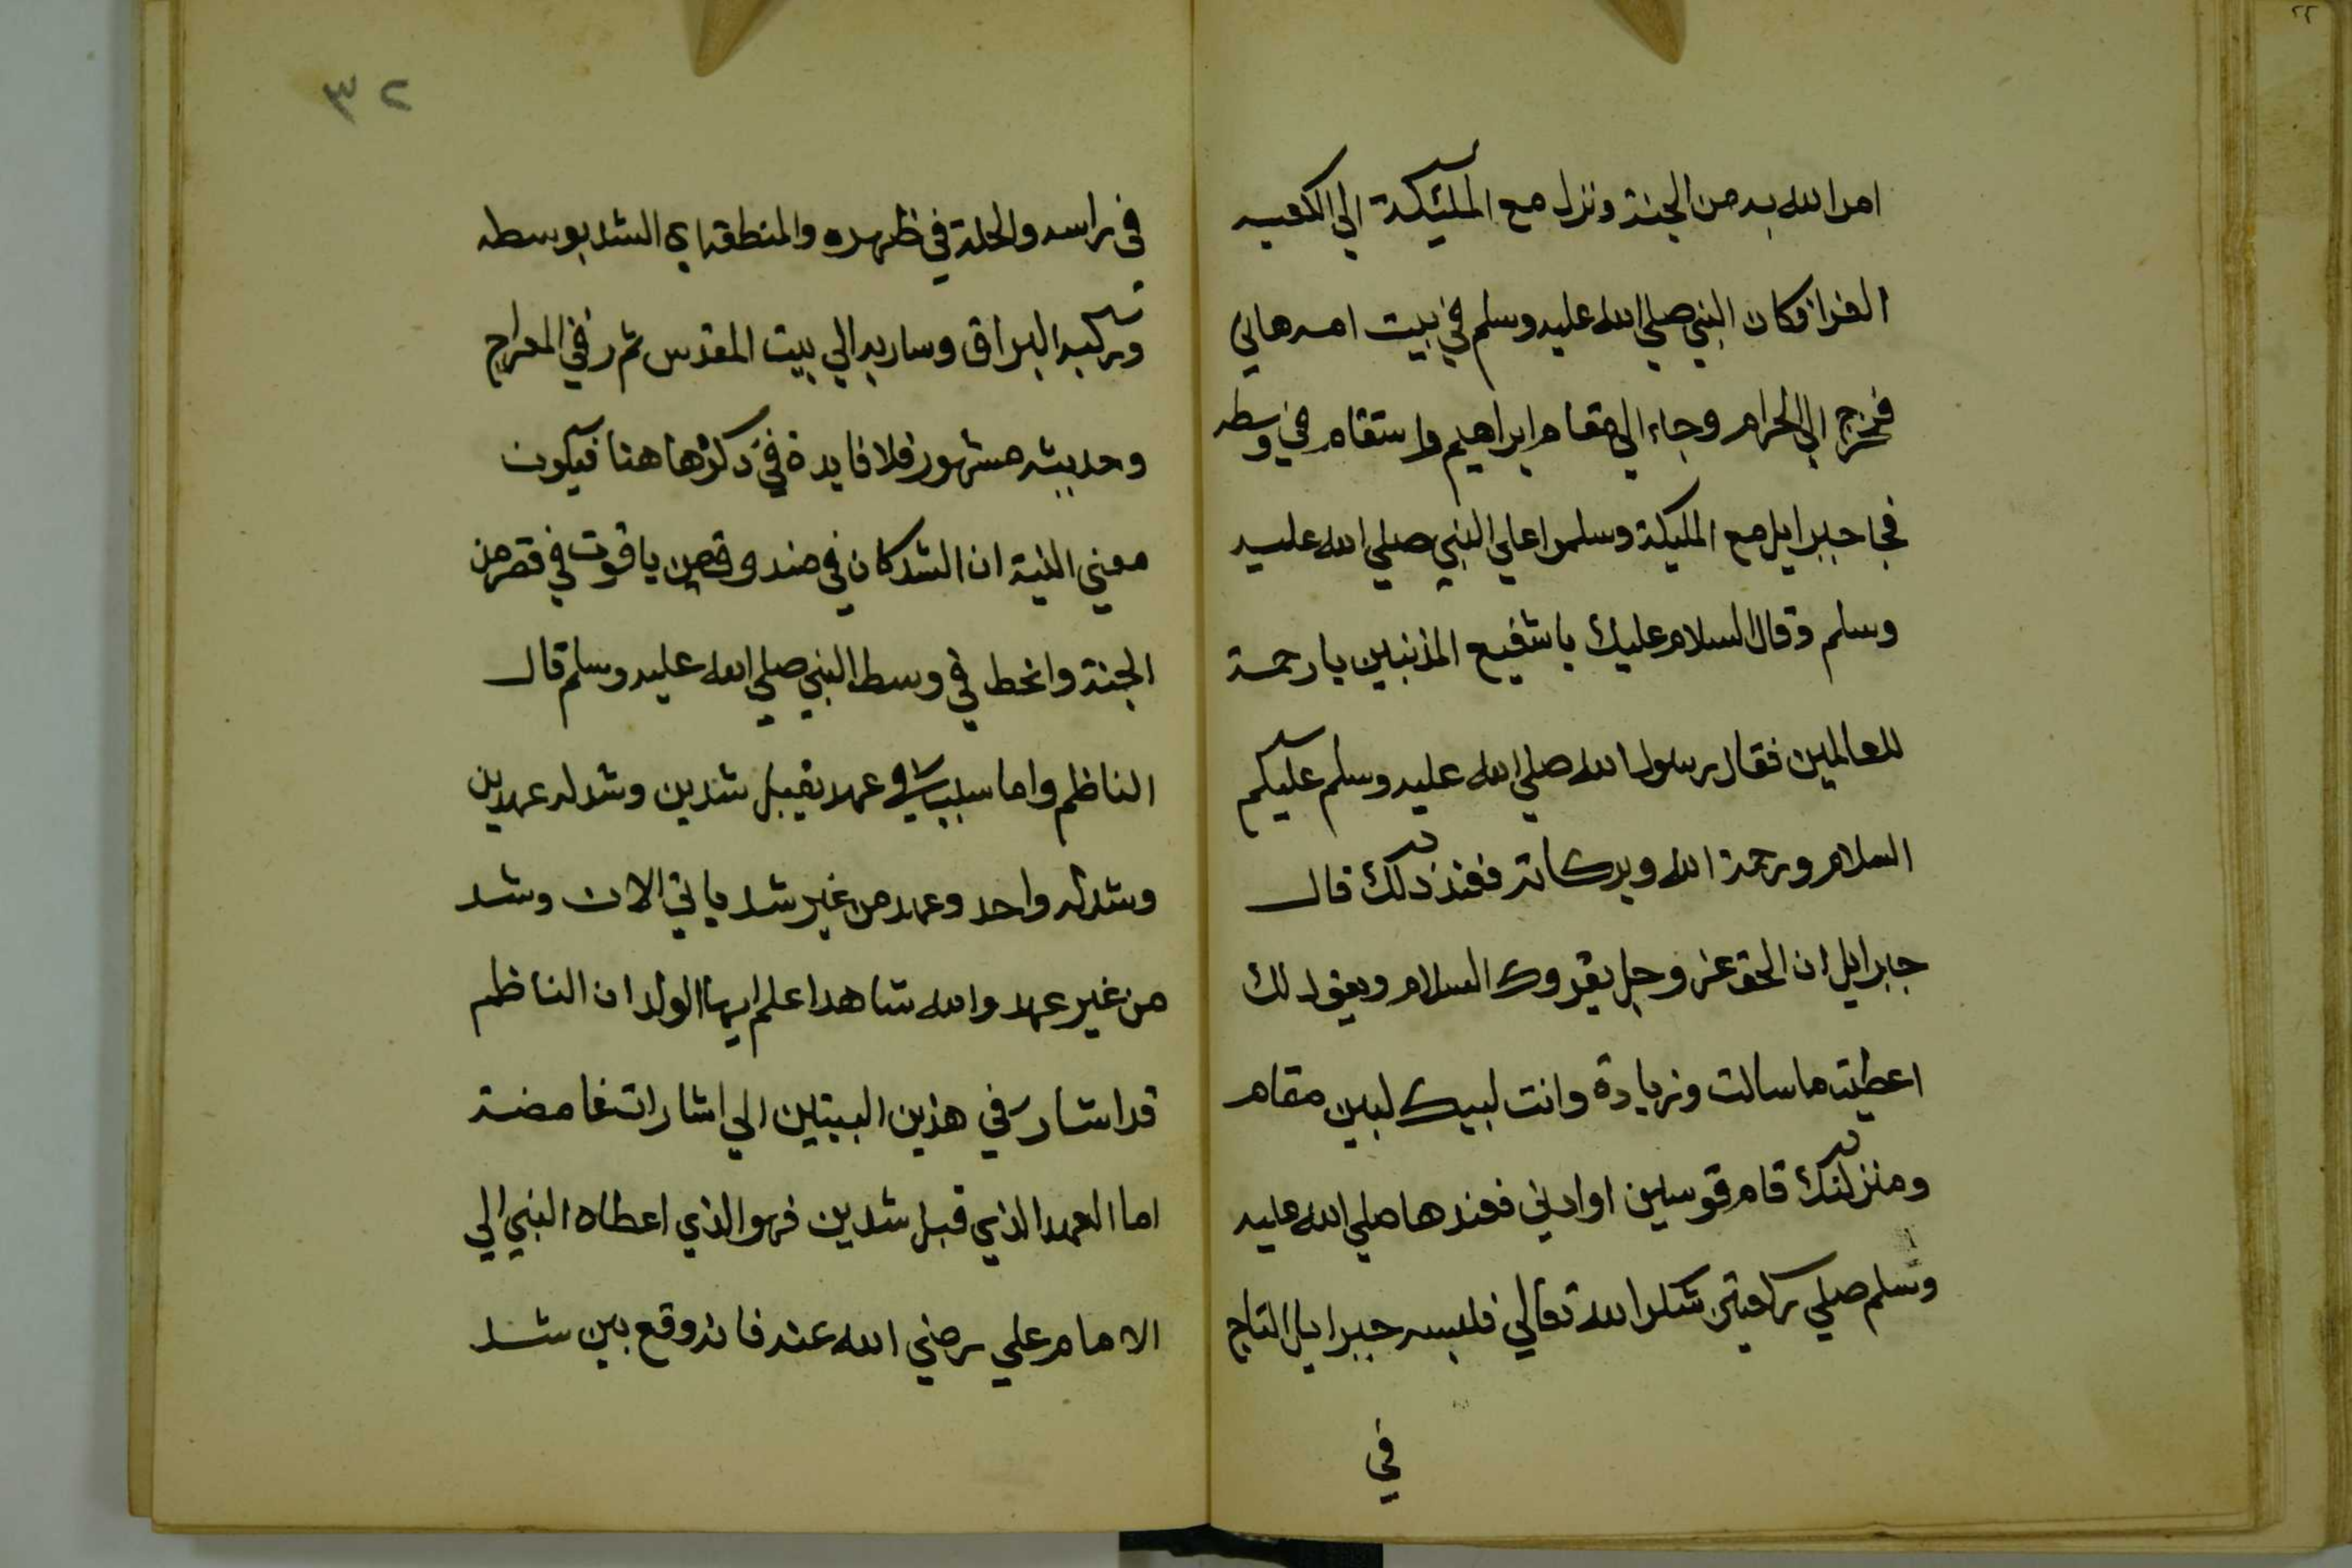 امر الله به من الجنة ونزل مع المليكة الي الكعبه
الغرا فكان النبي صلي الله عليه وسلم في بيت امه هاني
فخرج الي الحرام وجاء الي مقام ابراهيم واستقام في وسطه
فجا جبرايل مع المليكة وسلموا علي النبي صلي الله عليه
وسلم وقال السلام عليك يا شفيع المذنبين يا رحمة
للعالمين فقال رسول الله صلي الله عليه وسلم عليكم
السلام ورحمة الله وبركاته فعند ذلك قال
جبرايل ان الحق عز وجل يقروك السلام ويقول لك
اعطيته ما سالت وزيادة وانت لبيك لبين مقام
ومنزلتك قام قوسين او ادني فعندها صلي الله عليه
وسلم صلي ركعتين شكرا لله تعالي فلبسه جبرايل التاج
في
٢٣
في راسه والحلة في ظهره والمنطقة اي الشد بوسطه
وركبه البراق وسار به الي بيت المقدس ثم رقي المعراج
وحديثه مشهور فلا فايدة في ذكرها هنا فيكون
معني البيت ان الشد كان في صندوق من ياقوت في قصر من
الجنة وانحط في وسط النبي صلي الله عليه وسلم قال
الناظم واما سيباشي عهد بقبل شدين وشد له عهدين
وشد له واحد وعهد من غير شد ياتي الان وشد
من غير عهد والله شاهد اعلم ايها الولد ان الناظم
قد اشار في هذين البيتين الي اشارات غامضة
اما العهد الذي قبل شدين فهو الذي اعطاه النبي الي
الامام علي رضي الله عنه فانه وقع بين شد